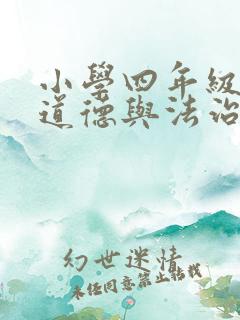 小學四年級
道德與法治
幻世迷情
未经同意禁止转载